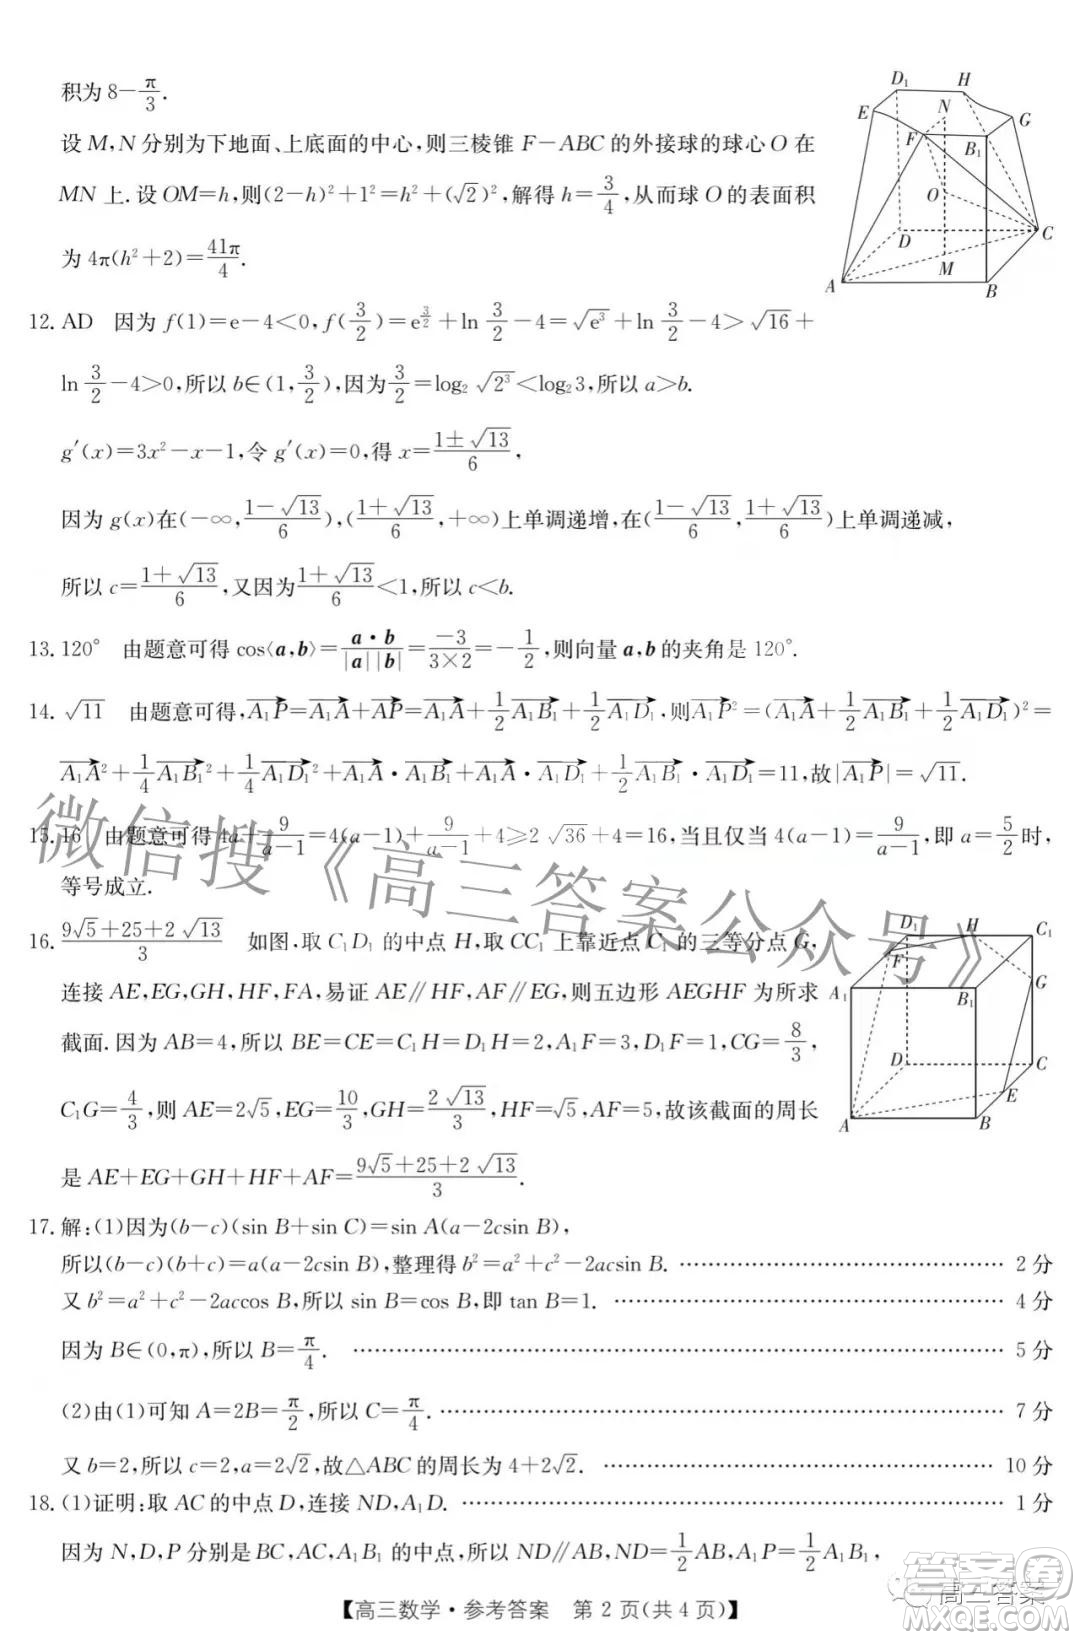 积为 8−π/3.
设 M,N 分别为下地面、上底面的中心,则三棱锥 F−ABC 的外接球的球心 O 在
MN 上. 设 OM=h,则(2−h)²+1²=h²+(√2)²,解得 h=3/4,从而球 O 的表面积
为 4π(h²+2)=41π/4.
D₁ H E N G F B₁ O D C M A B
12. AD 因为 f(1)=e−4<0, f(3/2)=e^(3/2)+ln 3/2−4=√e³+ln 3/2−4>√16+
ln 3/2−4>0,所以 b∈(1,3/2),因为3/2=log₂√2³<log₂3,所以 a>b.
g′(x)=3x²−x−1,令 g′(x)=0,得 x=(1±√13)/6,
因为 g(x)在(−∞,(1−√13)/6),((1+√13)/6,+∞)上单调递增,在((1−√13)/6,(1+√13)/6)上单调递减,
所以 c=(1+√13)/6,又因为(1+√13)/6<1,所以 c<b.
13. 120° 由题意可得 cos⟨a,b⟩=a·b/|a||b|=−3/(3×2)=−1/2,则向量 a,b 的夹角是 120°.
14. √11 由题意可得,A₁P=A₁A+AP=A₁A+1/2A₁B₁+1/2A₁D₁,则A₁P²=(A₁A+1/2A₁B₁+1/2A₁D₁)²=
A₁A²+1/4A₁B₁²+1/4A₁D₁²+A₁A·A₁B₁+A₁A·A₁D₁+1/2A₁B₁·A₁D₁=11,故|A₁P|=√11.
15. 16 由题意可得 4a+9/(a−1)=4(a−1)+9/(a−1)+4≥2√36+4=16,当且仅当 4(a−1)=9/(a−1),即 a=5/2时,
等号成立.
16. (9√5+25+2√13)/3 如图,取 C₁D₁ 的中点 H,取 CC₁ 上靠近点 C₁ 的三等分点 G,
连接 AE,EG,GH,HF,FA,易证 AE∥HF,AF∥EG,则五边形 AEGHF 为所求
截面. 因为 AB=4,所以 BE=CE=C₁H=D₁H=2,A₁F=3,D₁F=1,CG=8/3,
C₁G=4/3,则 AE=2√5,EG=10/3,GH=2√13/3,HF=√5,AF=5,故该截面的周长
是 AE+EG+GH+HF+AF=(9√5+25+2√13)/3.
D₁ H C₁ F G A₁ B₁ D C E A B
17. 解:(1)因为(b−c)(sin B+sin C)=sin A(a−2csin B),
所以(b−c)(b+c)=a(a−2csin B),整理得 b²=a²+c²−2acsin B. …… 2 分
又 b²=a²+c²−2accos B,所以 sin B=cos B,即 tan B=1. …… 4 分
因为 B∈(0,π),所以 B=π/4. …… 5 分
(2)由(1)可知 A=2B=π/2,所以 C=π/4. …… 7 分
又 b=2,所以 c=2,a=2√2,故△ABC 的周长为 4+2√2. …… 10 分
18. (1)证明:取 AC 的中点 D,连接 ND,A₁D. …… 1 分
因为 N,D,P 分别是 BC,AC,A₁B₁ 的中点,所以 ND∥AB,ND=1/2AB,A₁P=1/2A₁B₁,
【高三数学·参考答案 第 2 页(共 4 页)】
微信搜《高三答案公众号》
高三答案
答案圈
MXQE.COM